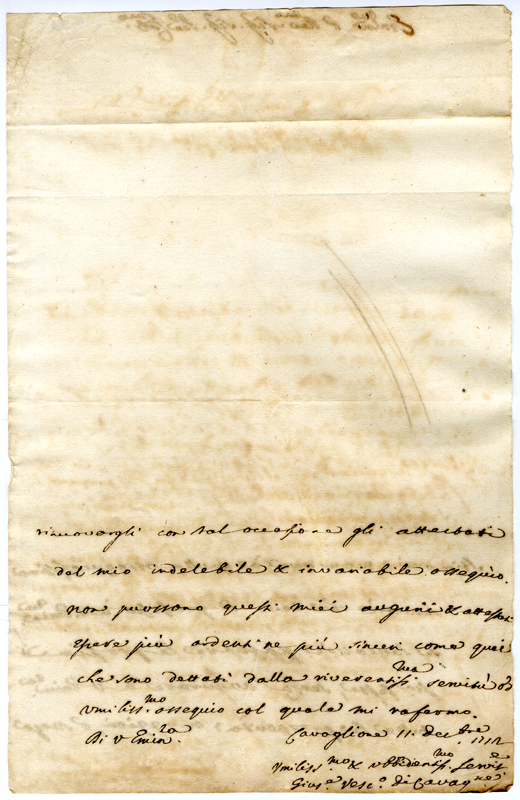 rinuovargli con tal occasione gli attestati
del mio indelebile & invariabile ossequio.
non puossono questi miei augurii & attestati
essere più ardenti ne più sinceri come quei
che sono dettati dalla riverentiss.ma servitù &
umiliss.mo ossequio col quale mi rafermo.
Di V Emin.za
Cavaglione 11. decbre
Umiliss.mo & ubbidientiss.mo Servit.e
Gius.e Vesc.o di Cavag.ne